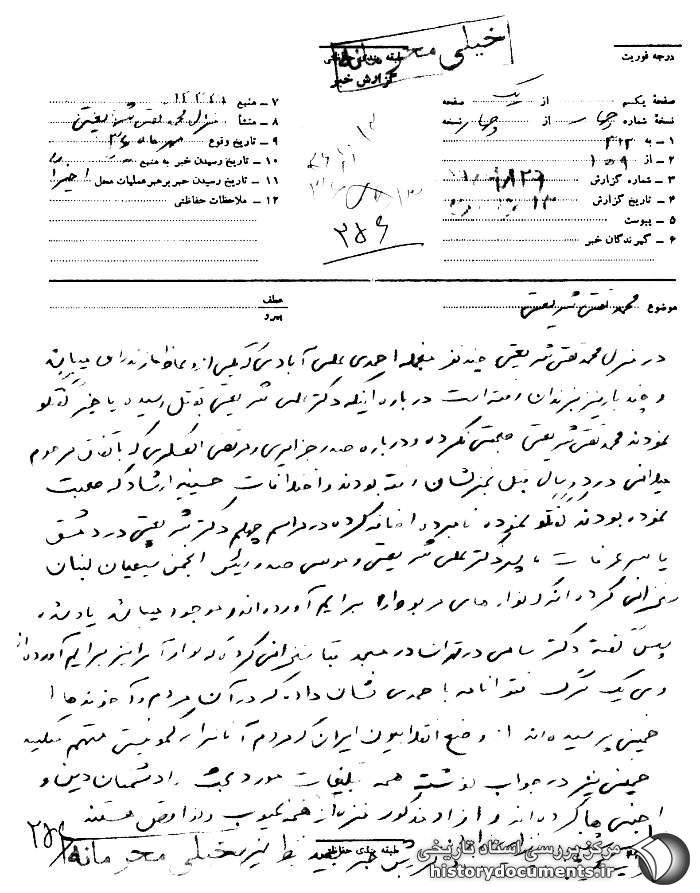 خیلی محرمانه
درجه فوریت
طبقه بندی حفاظتی
گزارش خبر
صفحه یکم از یک صفحه
نسخه شماره چهار از چهار نسخه
۱ – به ۳۱۲
۲ – از ۱۰۹
۳ – شماره گزارش
۴ – تاریخ گزارش
۵ – پیوست
۶ – گیرندگان خبر
۷ – منبع
۸ – منشأ منزل محمد تقی شریعتی
۹ – تاریخ وقوع مهرماه ۳۶
۱۰ – تاریخ رسیدن خبر به منبع
۱۱ – تاریخ رسیدن خبر برهبر عملیات محل اخیراً
۱۲ – ملاحظات حفاظتی
۲۸۶
موضوع محمد تقی شریعتی
عطف
پیرو
در منزل محمد تقی شریعتی چند نفر منجمله احمدی علی آبادی که یکی از وعاظ مازندران میباشد
و چند بار نیز بزندان رفته است درباره اینکه دکتر علی شریعتی بقتل رسیده یا خیر گفتگو
نمودند محمد تقی شریعتی صحبتی نکرده و درباره صدر جزایری و مرتضی العسکری که باتفاق مرحوم
میلانی در دو سال قبل بمنزلشان رفته بودند و اختلافات حسینیه ارشاد که صحبت
نموده بودند گفتگو نموده نامبرده اضافه کرده در مراسم چهلم دکتر شریعتی در دمشق
یاسر عرفات با پسر دکتر علی شریعتی و موسی صدر رئیس انجمن شیعیان لبنان
سخنرانی کرده اند که نوارهای مربوطه را برایم آورده اند و موجود میباشد یاد شده
سپس گفته دکتر سامی در تهران در مسجد قبا سخنرانی کرده که نوار آنرا نیز برایم آورده اند
وی یک برگ فتوا نامه با احمدی نشان داده که در آن مردم و آخوندها از
خمینی پرسیده اند از وضع انقلابیون ایران که مردم آنانرا به کمونیستی متهم میکنند
خمینی نیز در جواب نوشته همه تبلیغات مورد بحث را دشمنان دین و
اجنبی ها کرده اند و افراد مذکور منزه از همه عیوب
طبقه بندی حفاظتی
خیلی محرمانه
۲۸۶
مرکز بررسی اسناد تاریخی
historydocuments.ir